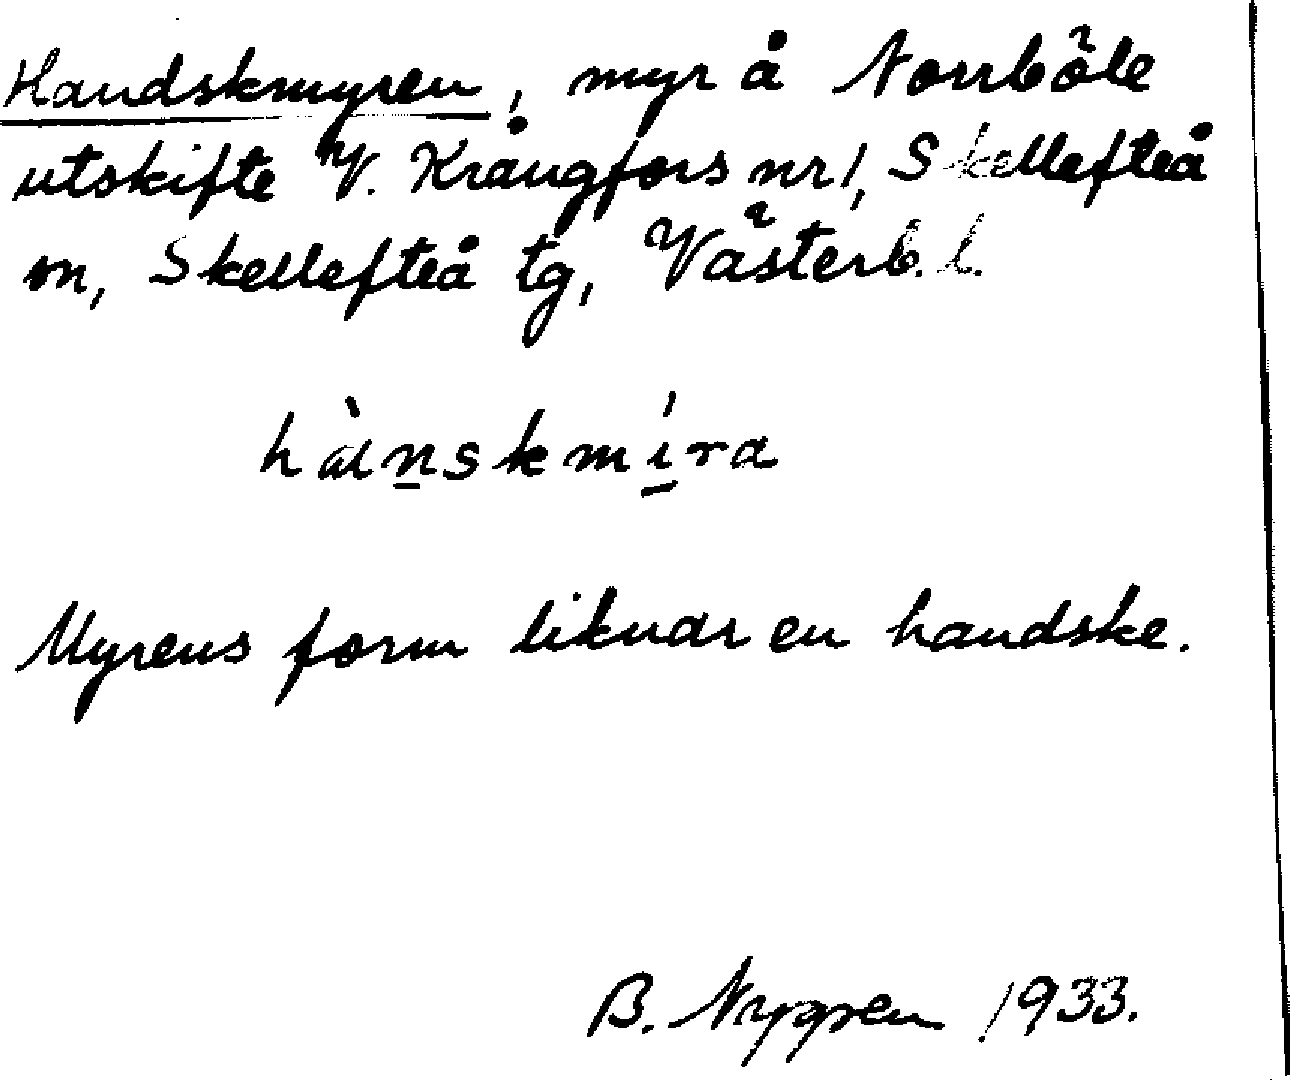 Handskmyren, myr å Norrböle
utskifte V. Krångfors nr 1, Skellefteå
sn, Skellefteå tg, Västerb. l.
hàn̲skmí̲ra
Myrens form liknar en handske.
B. Nygren 1933.